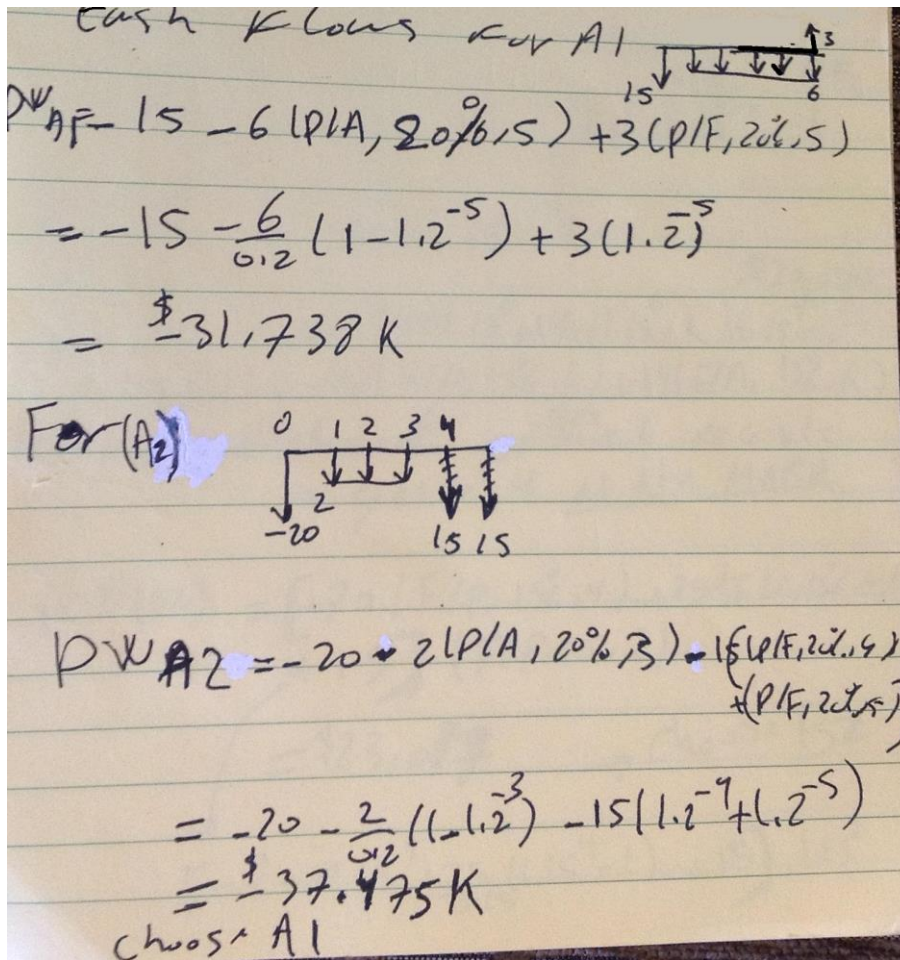 Cash Flows For A1
3
15 6
PW A1 = - 15 - 6 (P/A, 20%, 5) + 3 (P/F, 20%, 5)
= -15 - 6/0.2 (1 - 1.2^-5) + 3 (1.2)^-5
= $-31.738 K
For (A2)
0 1 2 3 4
2
-20 15 15
PW A2 = - 20 - 2 (P/A, 20%, 3) - 15 ((P/F, 20%, 4)
+ (P/F, 20%, 5)
)
= -20 - 2/0.2 (1 - 1.2^-3) - 15 (1.2^-4 + 1.2^-5)
= $-37.475 K
choose A1